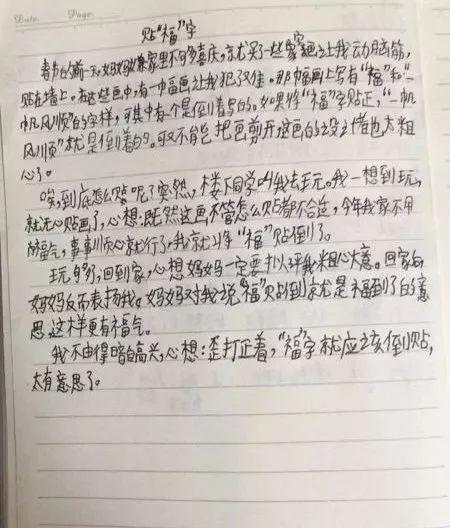 Date: Page:
贴“福”字
春节的前一天,妈妈嫌家里不够喜庆,就买了一些画让我动脑筋,
贴在墙上。在这些画中,有一幅画让我犯了难。那幅画上写有“福”和“一
帆风顺”的字样,可其中有一个是倒着写的。如果将“福”字贴正,“一帆
风顺”就是倒着的。可又不能把画剪开,这画的设计者也太粗
心了。
唉,到底怎么贴呢?突然,楼下同学叫我去玩。我一想到玩,
就无心贴画了,心想:既然这画不管怎么贴都不合适,今年我家不用
福气,事事顺心就行了,我就将“福”贴倒了。
玩够了,回到家,心想妈妈一定要批评我粗心大意。回家后
妈妈反而表扬我。妈妈对我说“福”贴倒就是福到了的意
思,这样更有福气。
我不由得暗自高兴,心想:歪打正着,“福”字就应该倒贴,
太有意思了。